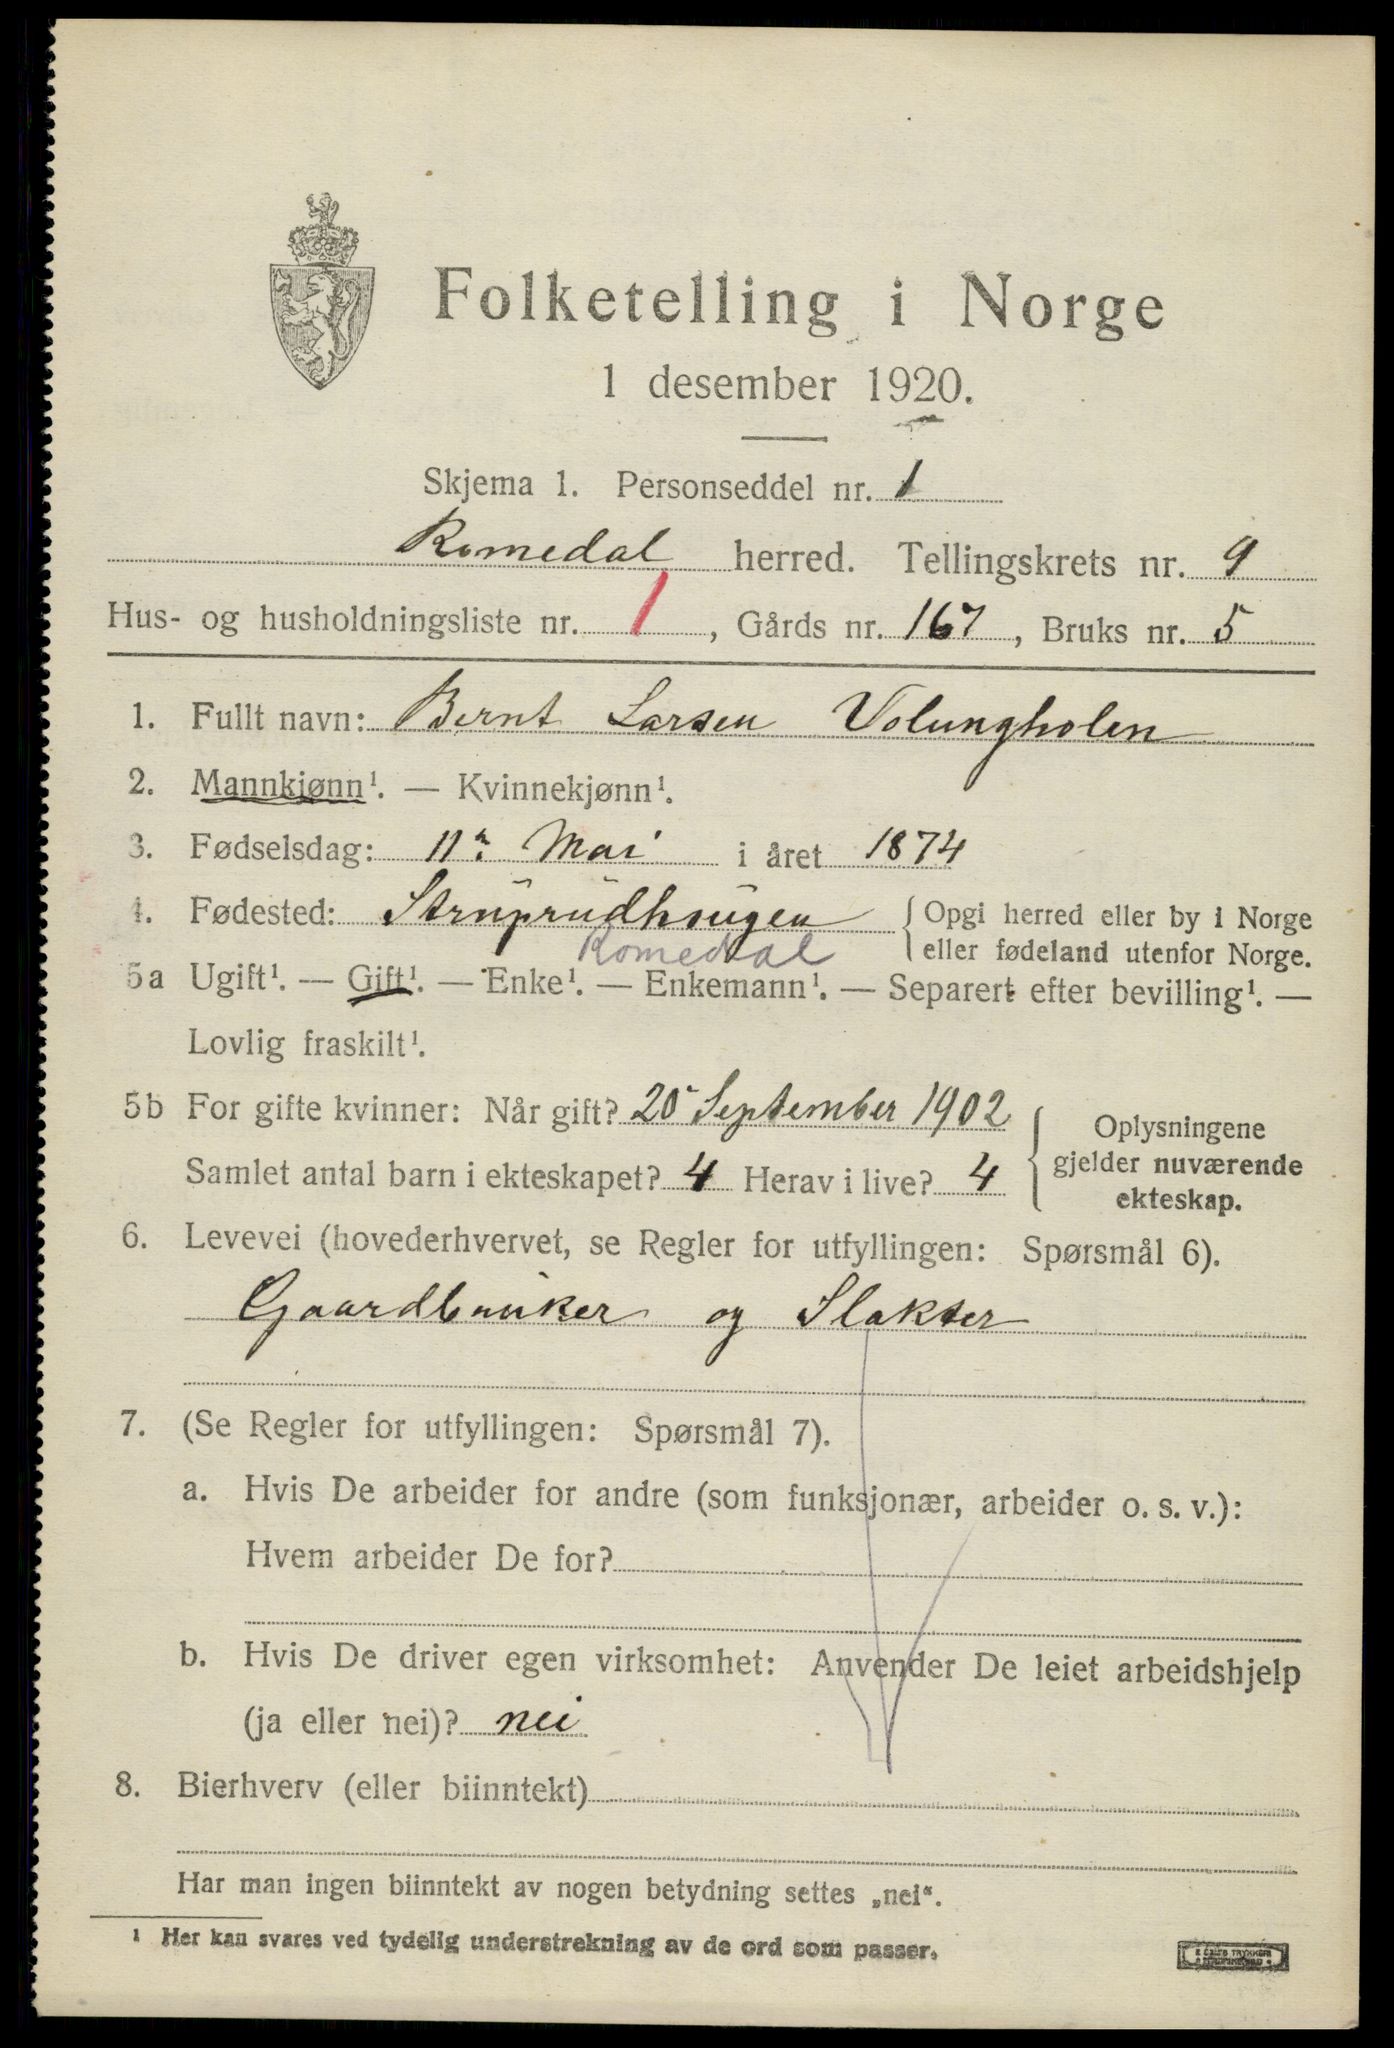 Folketelling i Norge
1 desember 1920.
Skjema 1. Personseddel nr. 1
Romedal herred. Tellingskrets nr. 9
Hus- og husholdningsliste nr. 1, Gårds nr. 167, Bruks nr. 5
1. Fullt navn: Bernt Larsen Volungholen
2. Mannkjønn¹. — Kvinnekjønn¹.
3. Fødselsdag: 11 Mai i året 1874
4. Fødested: Struprudhaugen { Opgi herred eller by i Norge
Romedal eller fødeland utenfor Norge.
5a Ugift¹. — Gift¹. — Enke¹. — Enkemann¹. — Separert efter bevilling¹. —
Lovlig fraskilt¹.
5b For gifte kvinner: Når gift? 20 September 1902 { Oplysningene
gjelder nuværende
Samlet antal barn i ekteskapet? 4 Herav i live? 4
ekteskap.
6. Levevei (hovederhvervet, se Regler for utfyllingen: Spørsmål 6).
Gaardbruker og Slakter
7. (Se Regler for utfyllingen: Spørsmål 7).
a. Hvis De arbeider for andre (som funksjonær, arbeider o. s. v.):
Hvem arbeider De for?
b. Hvis De driver egen virksomhet: Anvender De leiet arbeidshjelp
(ja eller nei)? nei
8. Bierhverv (eller biinntekt)
Har man ingen biinntekt av nogen betydning settes „nei“.
¹ Her kan svares ved tydelig understrekning av de ord som passer.